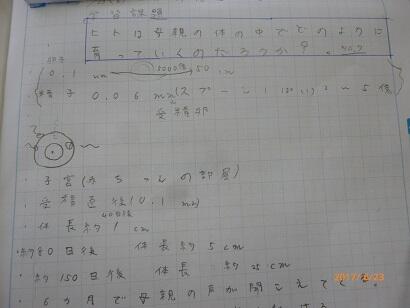 学習課題
ヒトは母親の体の中でどのように
育っていくのだろうか?
卵子
0.1 mm 500倍 50 cm
精子 0.06 mm
受精卵
・子宮(赤ちゃんの部屋)
・受精直後(0.1 mm)
40日後
・体長約1 cm
・約80日後 体長約5 cm
・約150日後 体長 約25 cm
・6か月で母親の声が聞こえてくる。
2017/6/23